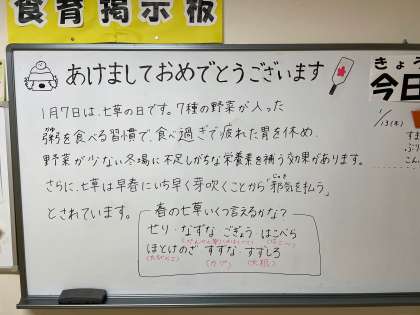 食育掲示板
あけましておめでとうございます
1月7日は、七草の日です。7種の野菜が入った
粥を食べる習慣で、食べ過ぎで疲れた胃を休め、
野菜が少ない冬場に不足しがちな栄養素を補う効果があります。
さらに、七草は早春にいち早く芽吹くことから「邪気を払う」
じゃき
とされています。
春の七草いくつ言えるかな?
せり・なずな・ごぎょう・はこべら
ほとけのざ・すずな・すずしろ
(かぶ)
(大根)
きょう
今日
1/13(木)